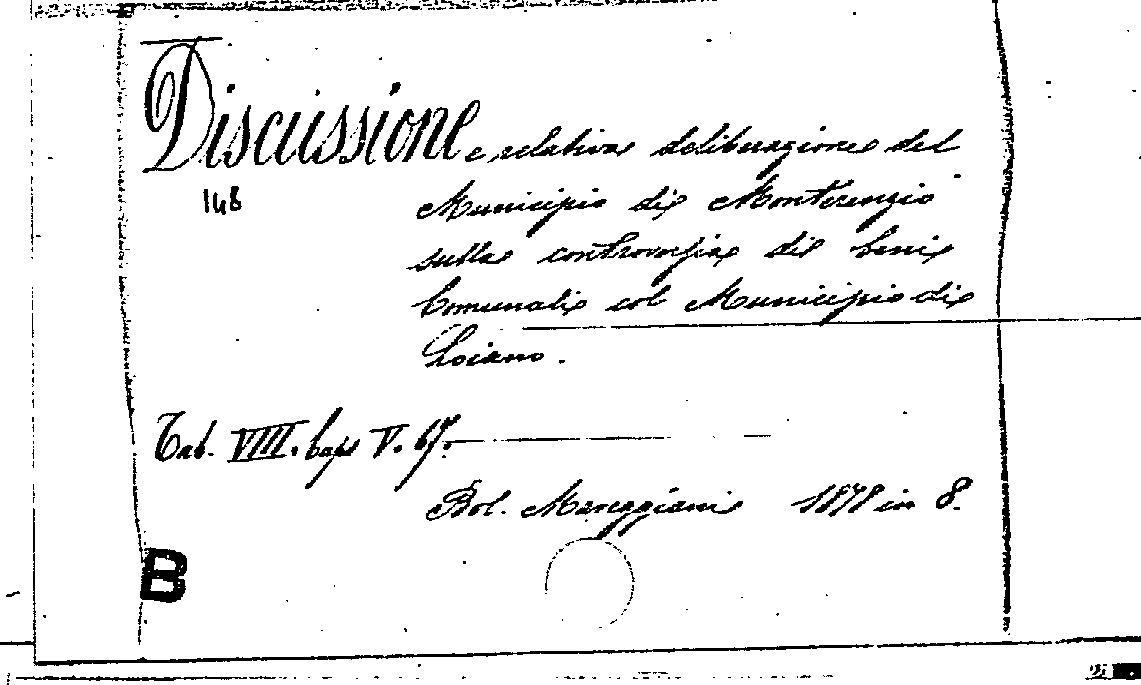 Discussione e relativa deliberazione del
148
Municipio di Monterenzio
sulla controversia di beni
Comunali col Municipio di
Loiano.
Tab. VIII. Caps V. 67.
Bol. Mareggiani 1878 in 8.
B